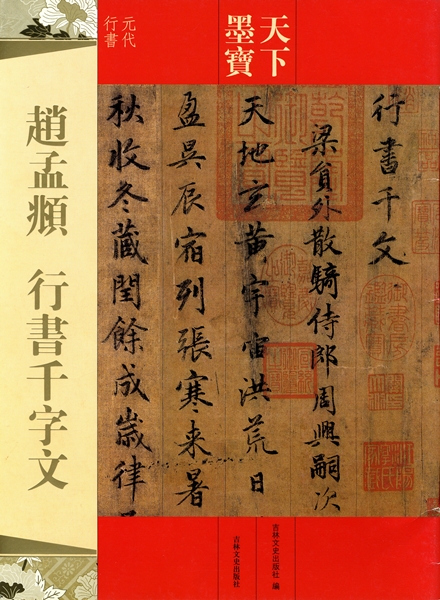 天下
墨寶
元代
行書
趙孟頫 行書千字文
行書千文
梁員外散騎侍郎周興嗣次
天地玄黃宇宙洪荒日
盈昃辰宿列張寒来暑
秋收冬藏閏餘成歲律
吉林文史出版社 編
吉林文史出版社